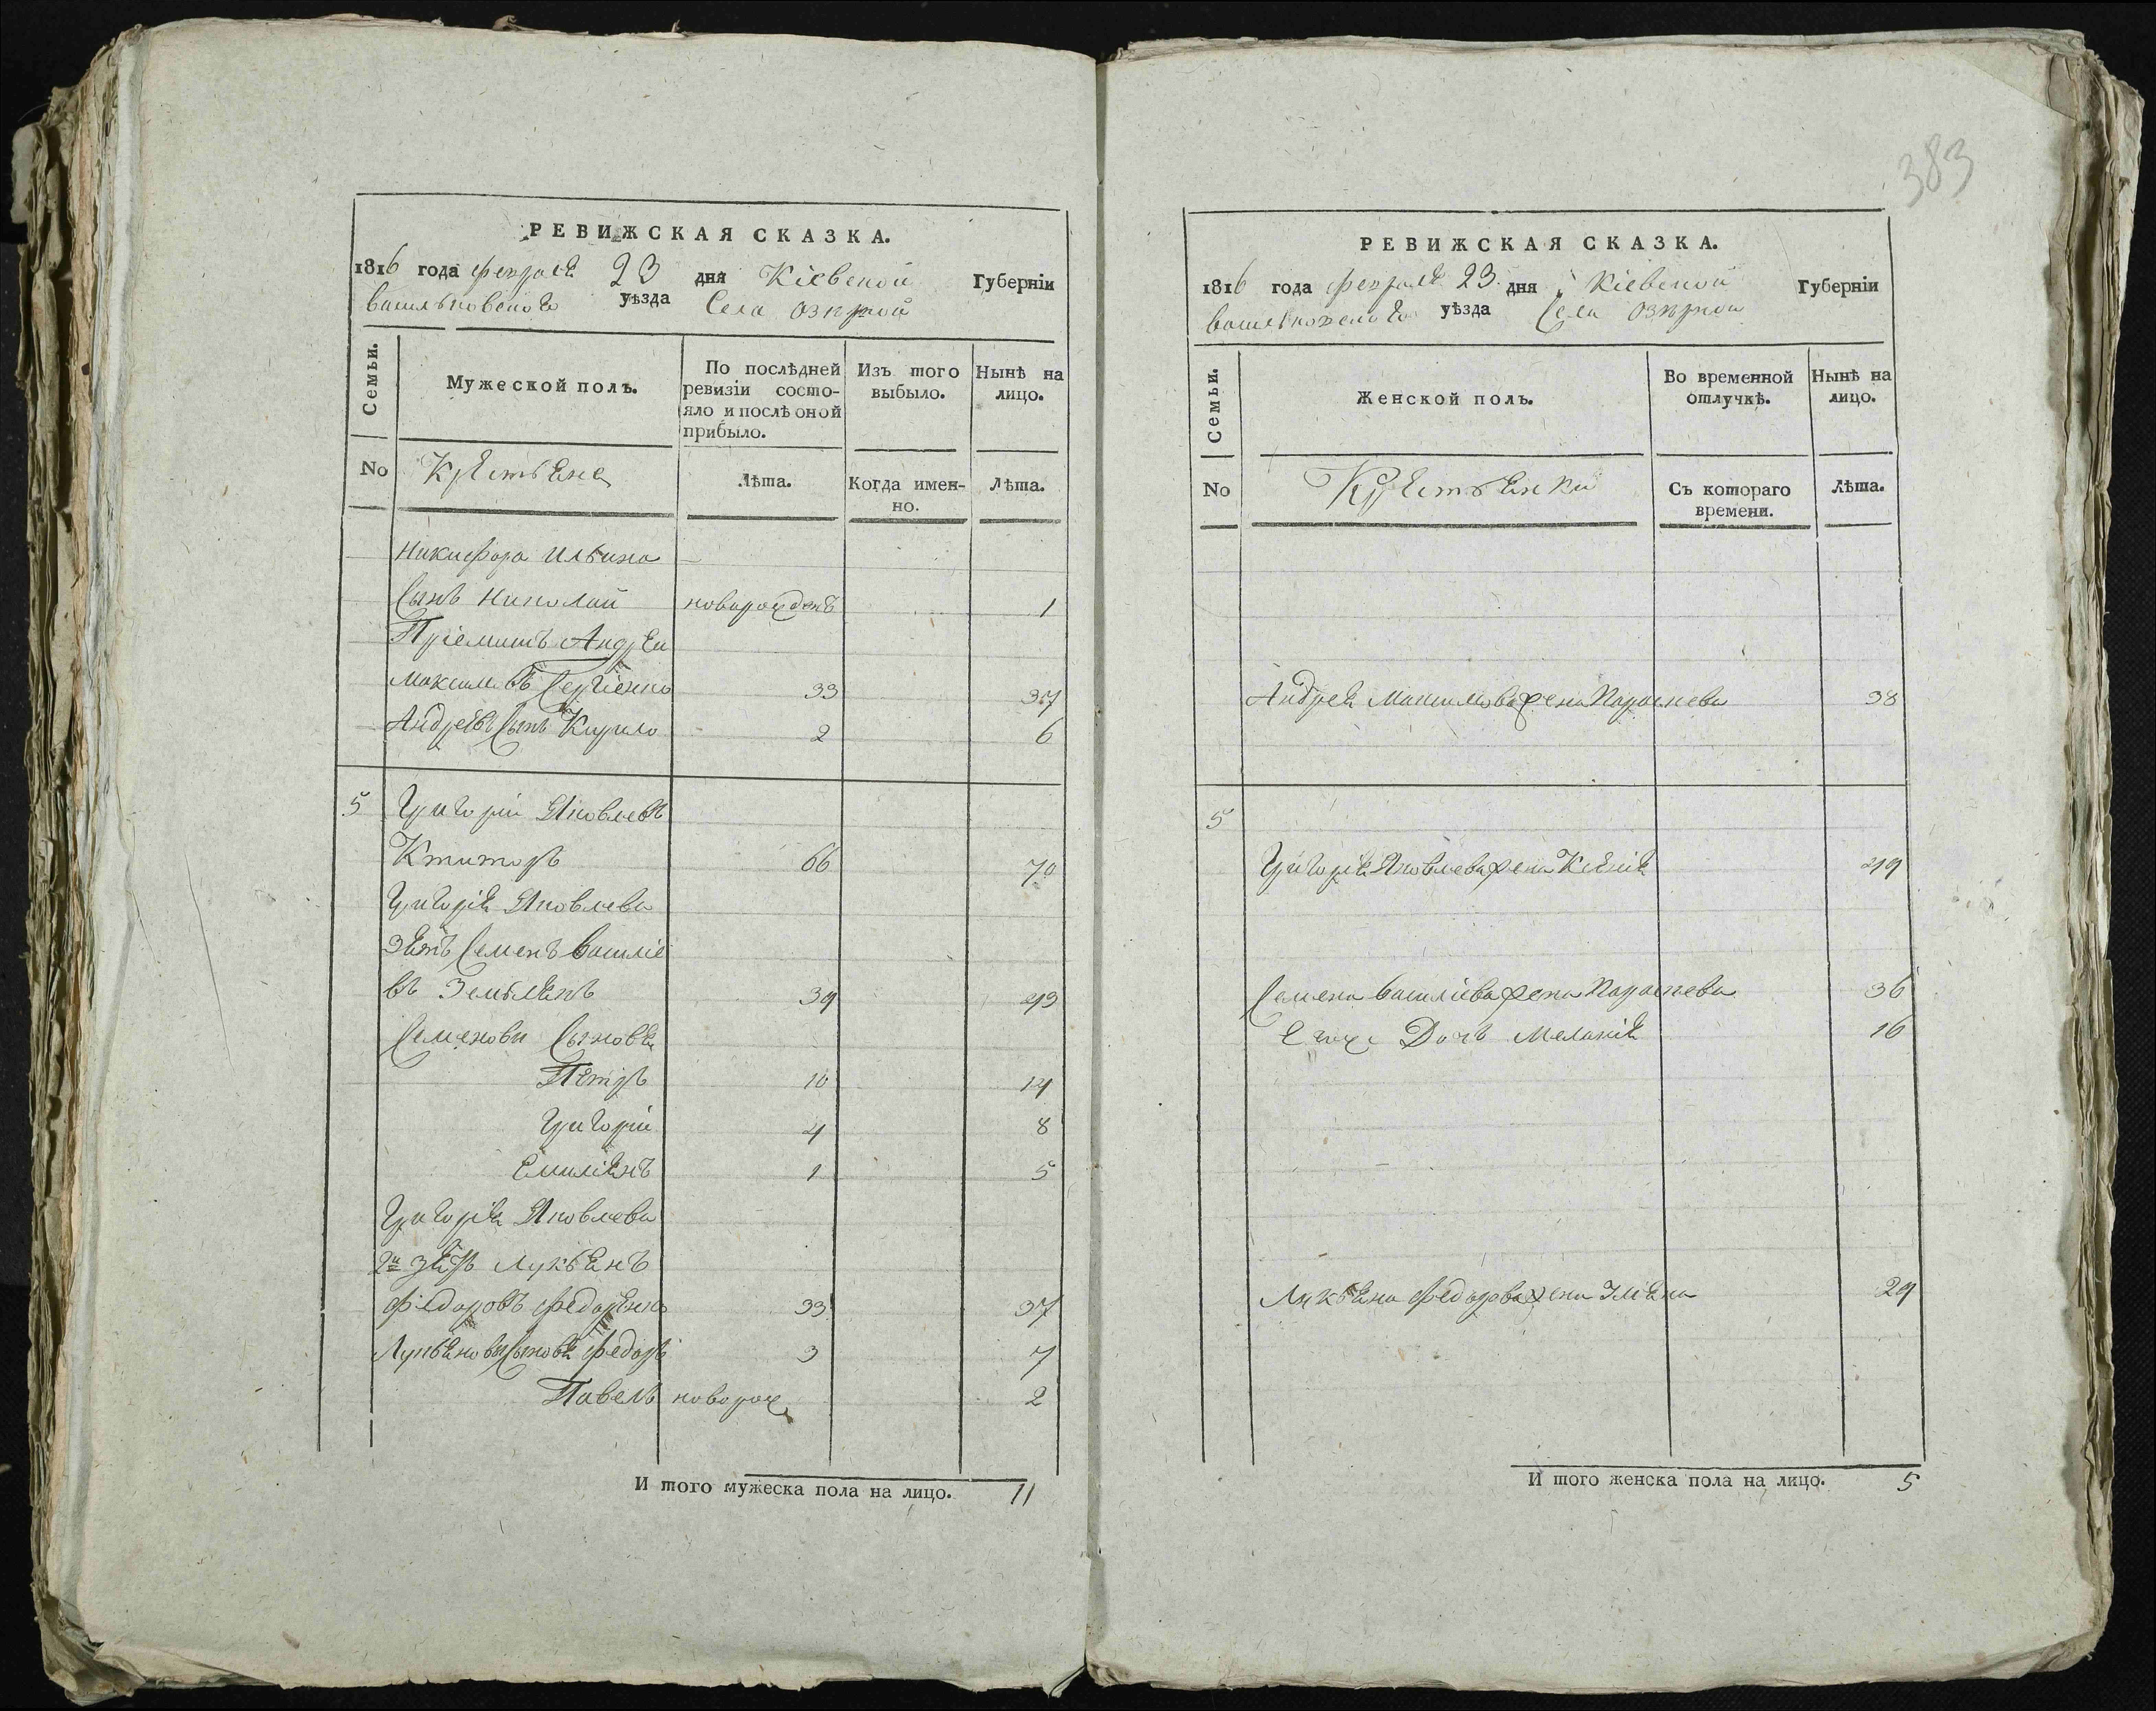 РЕВИЖСКАЯ СКАЗКА.
1816 года февраля 23 дня Кіевской Губерніи
васильковского уѣзда Села Озирной
Семьи.
Мужеской полъ.
По послѣдней ревизіи состо-
яло и послѣ оной прибыло.
Изъ того выбыло.
Нынѣ на лицо.
No
Крестьяне
Лѣта.
Когда имен-
но.
Лѣта.
Никифора Ильина
Сынъ Николай новорожденъ 1
Пріемишъ Андрей
Максимовъ Сергіенко 33 37
Андреевъ Сынъ Кирило 2 6
5 Григорій Яковлевъ
Ктиторъ 66 70
Григорія Яковлева
Зять Семенъ Василіе
въ Землянъ 39 43
Семенови Сыновя
Петръ 10 14
Григорій 4 8
Емиліянъ 1 5
Григорія Яковлева
2й зять Лукьянъ
Федоровъ Федоренко 33 37
Лукьяновы Сыновя Федоръ 3 7
Павелъ новорож 2
И того мужеска пола на лицо. 11
383
РЕВИЖСКАЯ СКАЗКА.
1816 года февраля 23 дня Кіевской Губерніи
васильковского уѣзда Села Озирной
Семьи.
Женской полъ.
Во временной отлучкѣ.
Нынѣ на лицо.
No
Крестьянки
Съ котораго времени.
Лѣта.
Андрея Максимова жена Параскева 38
5
Григорія Яковлева жена Ксенія 49
Семена Василіева жена Параскева 36
Егож Дочь Меланія 16
Лукьяна Федорова жена Уляна 29
И того женска пола на лицо. 5